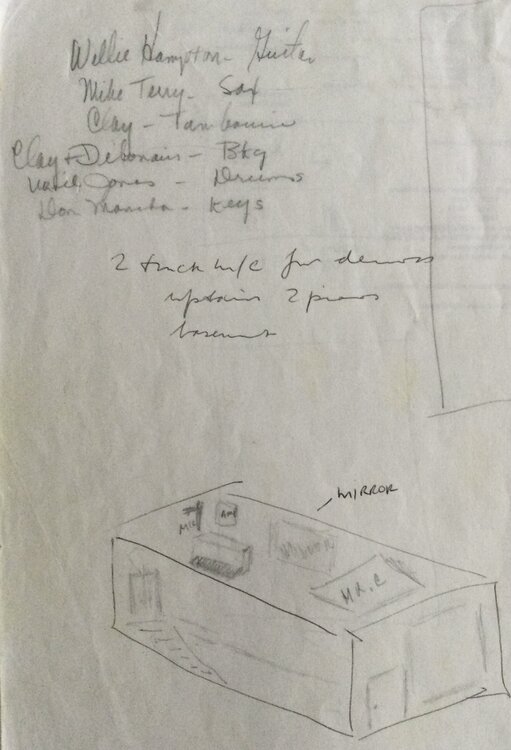 Willie Hampton - Guitar
Mike Terry - Sax
Clay - Tambourine
Clay + Debonairs - Bkg
Jones - Drums
Don - Keys
2 track m/c for demos
upstairs 2 pianos
basement
MIRROR
MIC
AMP
MIRROR
M.R.C